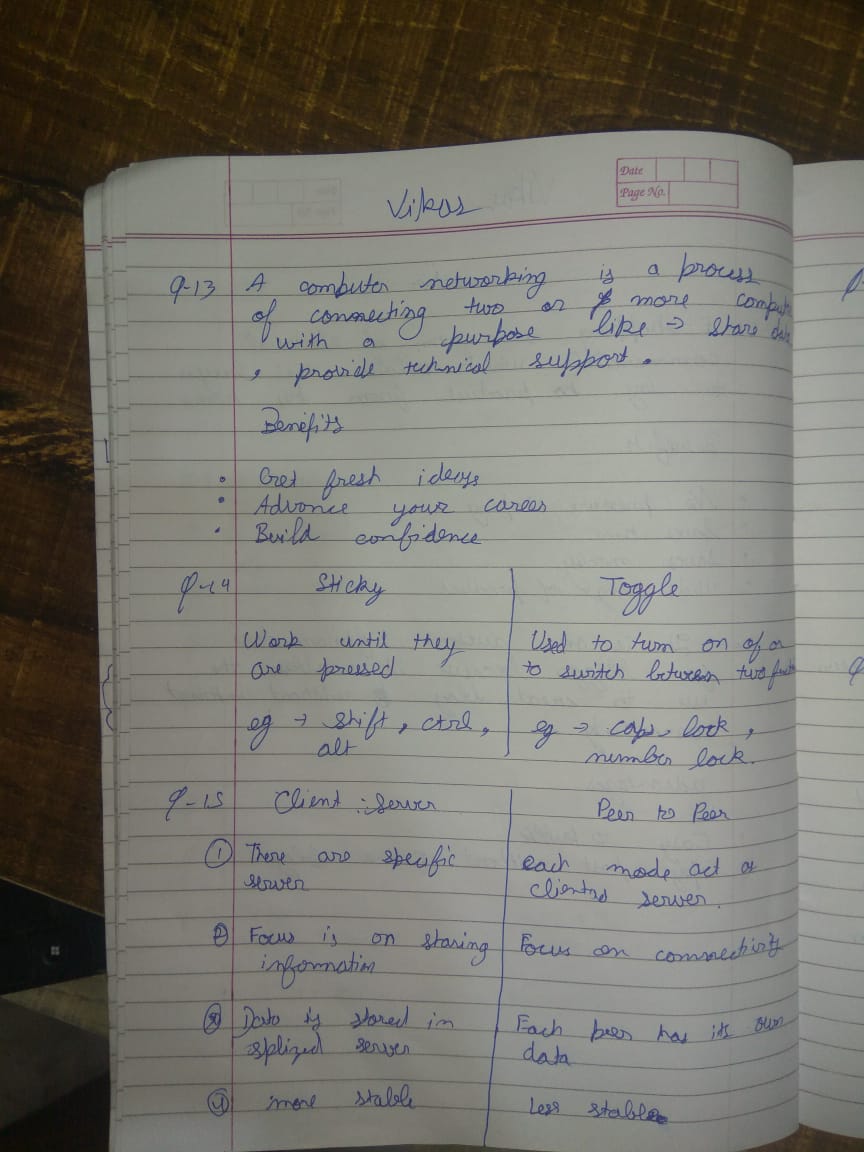 Date
Page No.
Vikas
Q-13 A computer networking is a process
of connecting two or more comput
with a purpose like → share data
, provide technical support.
Benefits
• Get fresh ideas
• Advance your career
• Build confidence
Q-14 Sticky Toggle
Work until they Used to turn on of or
are pressed to switch between two
eg → shift, ctrl, eg → caps lock,
alt number lock.
Q-15 Client : Server Peer to Peer
① There are specific each mode act a
server client server.
② Focus is on sharing Focus on connectivity
information
③ Data is stored in Each peer has its own
server data
④ more stable Less stable